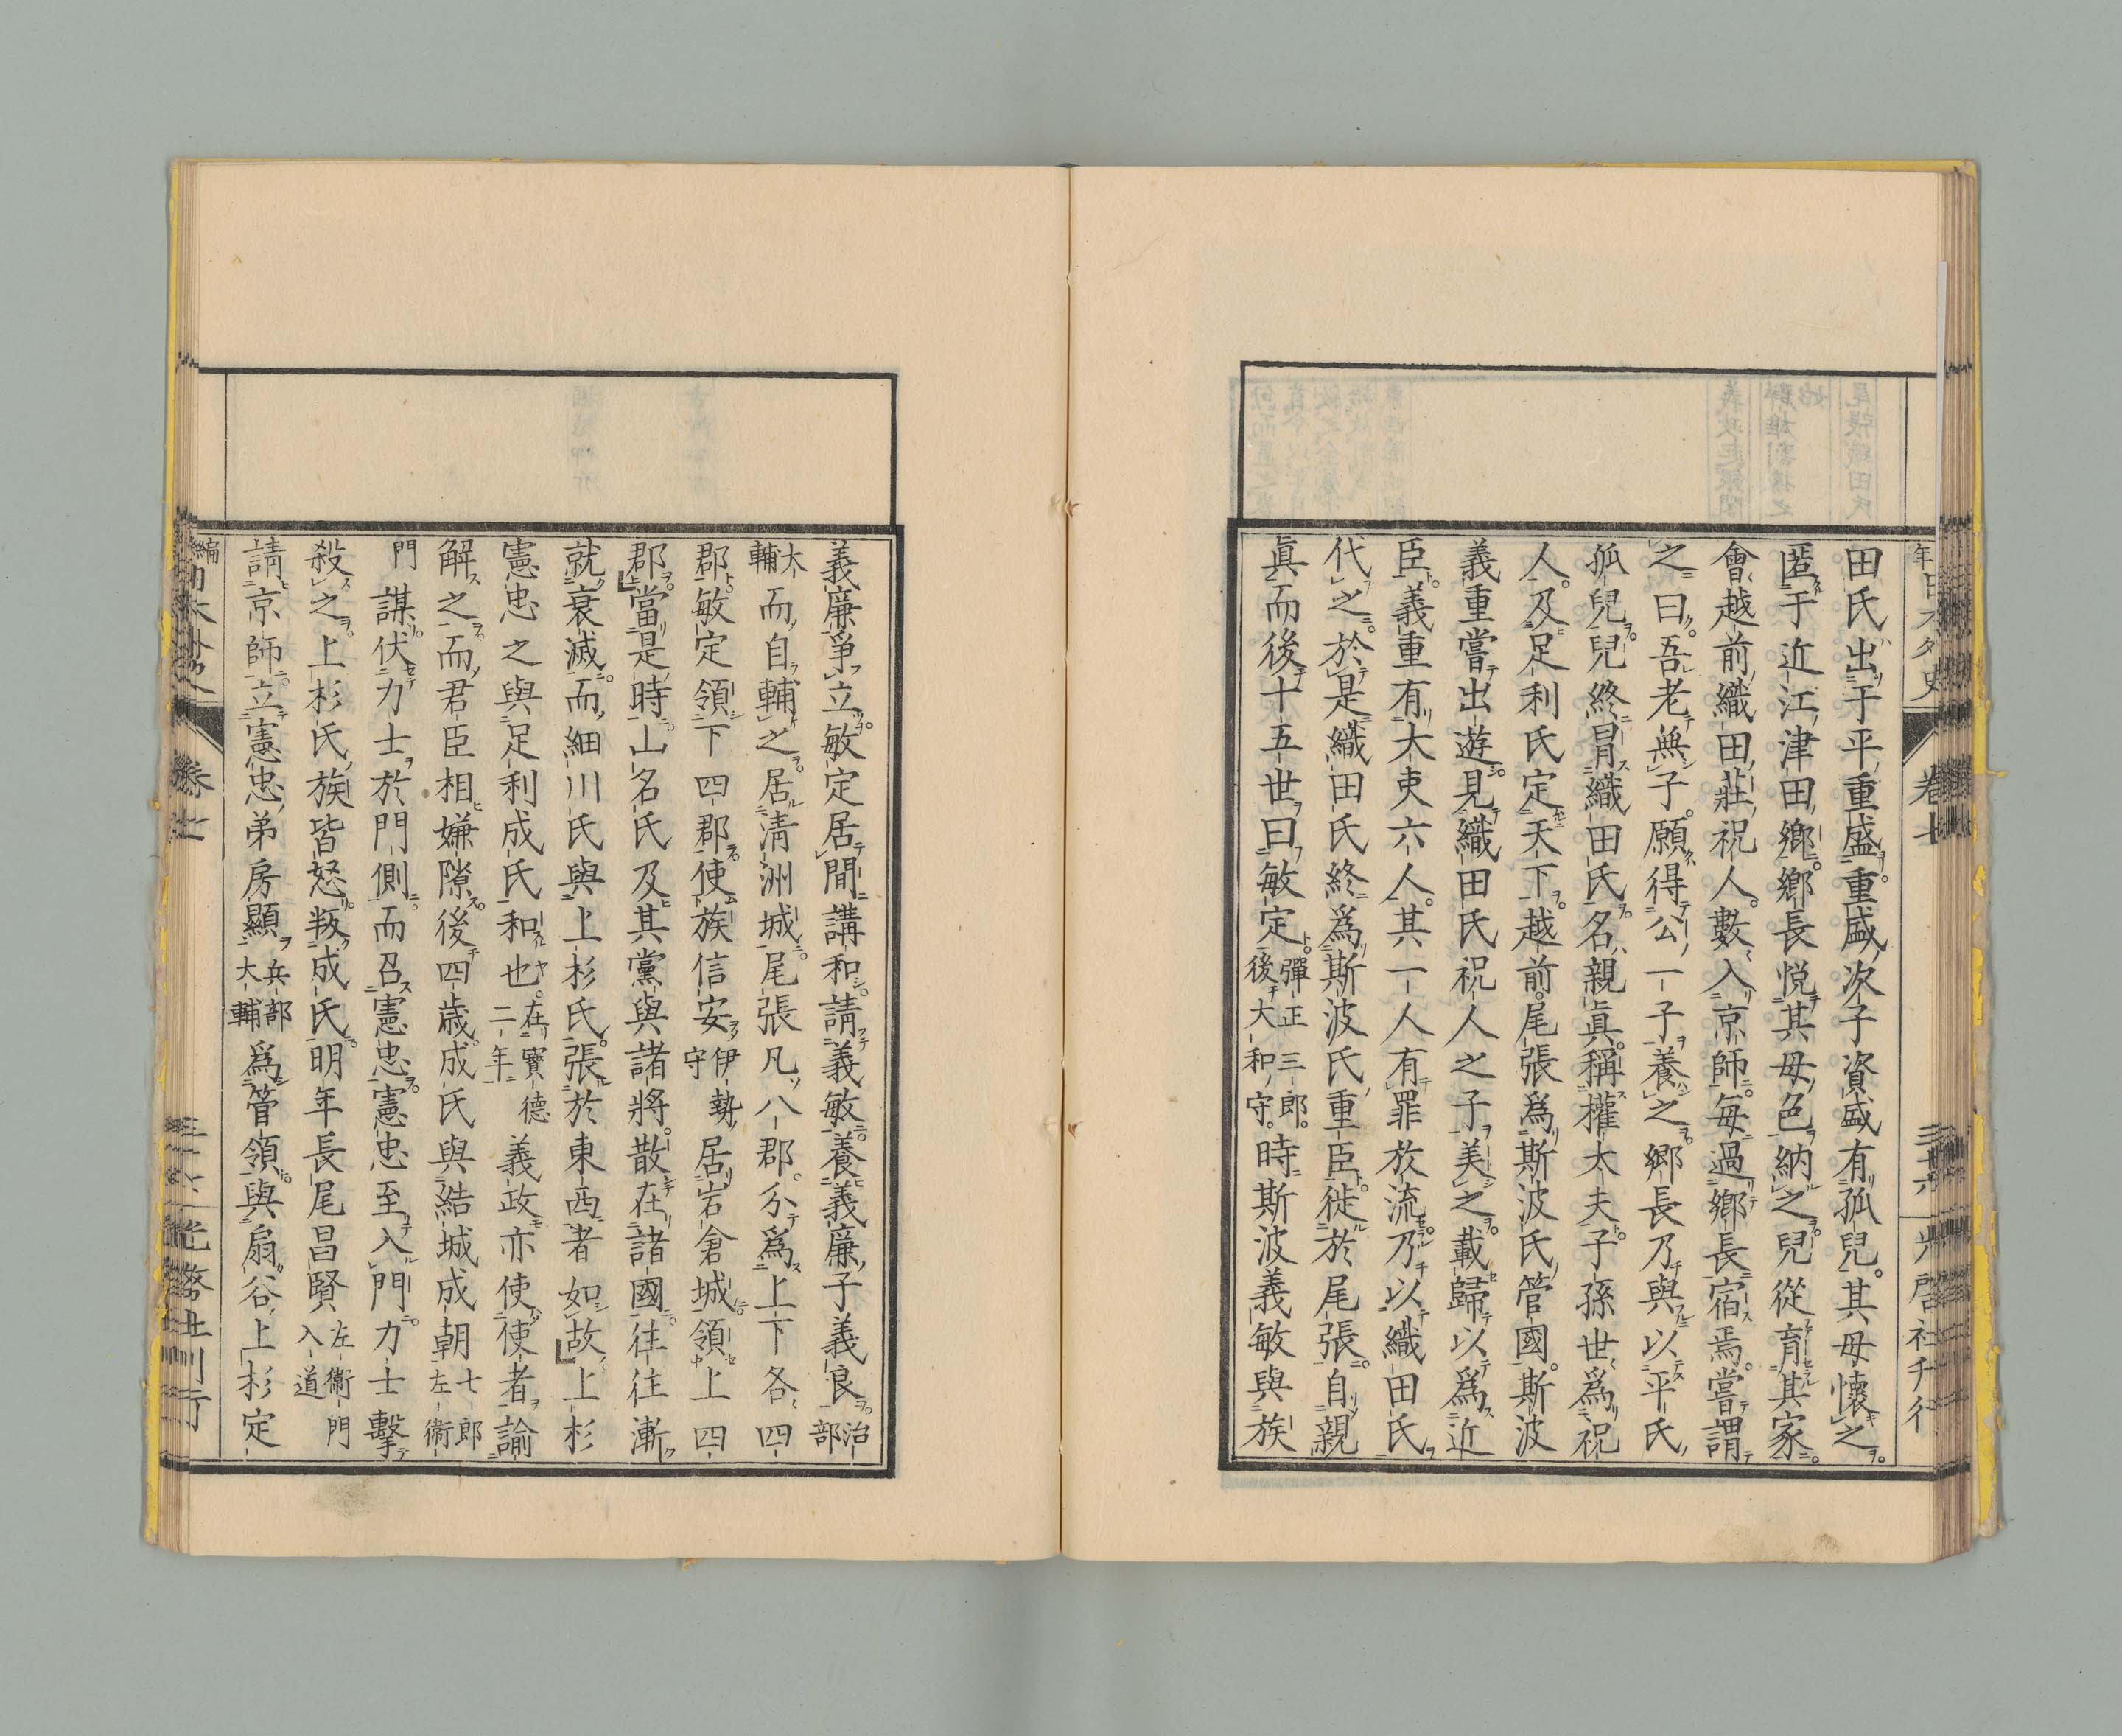 田氏出于平重盛。重盛次子資盛有孤兒。其母懷之
匿于近江津田鄉。鄉長悅其母色納之。兒從育其家。
會越前織田莊祝人。數入京師。每過鄉長宿焉。嘗謂
之曰。吾老無子。願得公一子養之。鄉長乃與以平氏
孤兒。兒終冒織田氏。名親眞。稱權大夫。子孫世爲祝
人。及足利氏定天下。越前尾張爲斯波氏管國。斯波
義重嘗出遊。見織田氏祝人之子美之。載歸以爲近
臣。義重有大吏六人。其一人有罪放流。乃以織田氏
代之。於是織田氏終爲斯波氏重臣。徙於尾張。自親
眞而後十五世曰敏定。彈正三郎。後大和守。時斯波義敏與族
義廉爭立。敏定居間講和。請義敏養義廉子義良。治部
大輔而自輔之。居清洲城。尾張凡八郡。分爲上下各四
郡。敏定領下四郡。使族信安伊勢守居岩倉城。領上四
郡。當是時山名氏及其黨與諸將。散在諸國。往往漸
就衰滅。而細川氏與上杉氏。張於東西者如故。上杉
憲忠之與足利成氏和也。在寶德二年義政亦使使者諭
解之。而君臣相嫌隙。後四歲。成氏與結城成朝七郎左衞
門謀。伏力士於門側。而召憲忠。憲忠至入門。力士擊
殺之。上杉氏族皆怒叛成氏。明年長尾昌賢左衞門入道
請京師。立憲忠弟房顯兵部大輔爲管領。與扇谷上杉定
卷七